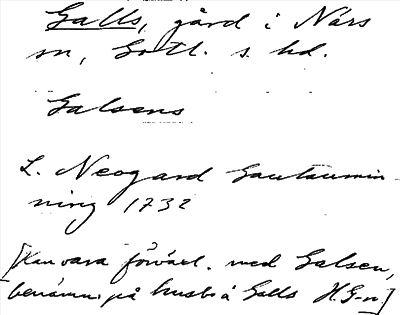 Galls, gård i Närs
sn, Gotl. s. hd.
Galsens
L. Neogard Gautaumin-
ning 1732
[Kan vara förväxl. med Galsen,
benämn. på husb. å Galls H.G-n.]